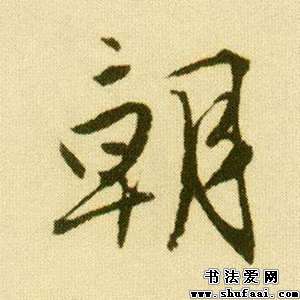 朝
书法爱网
www.shufaai.com